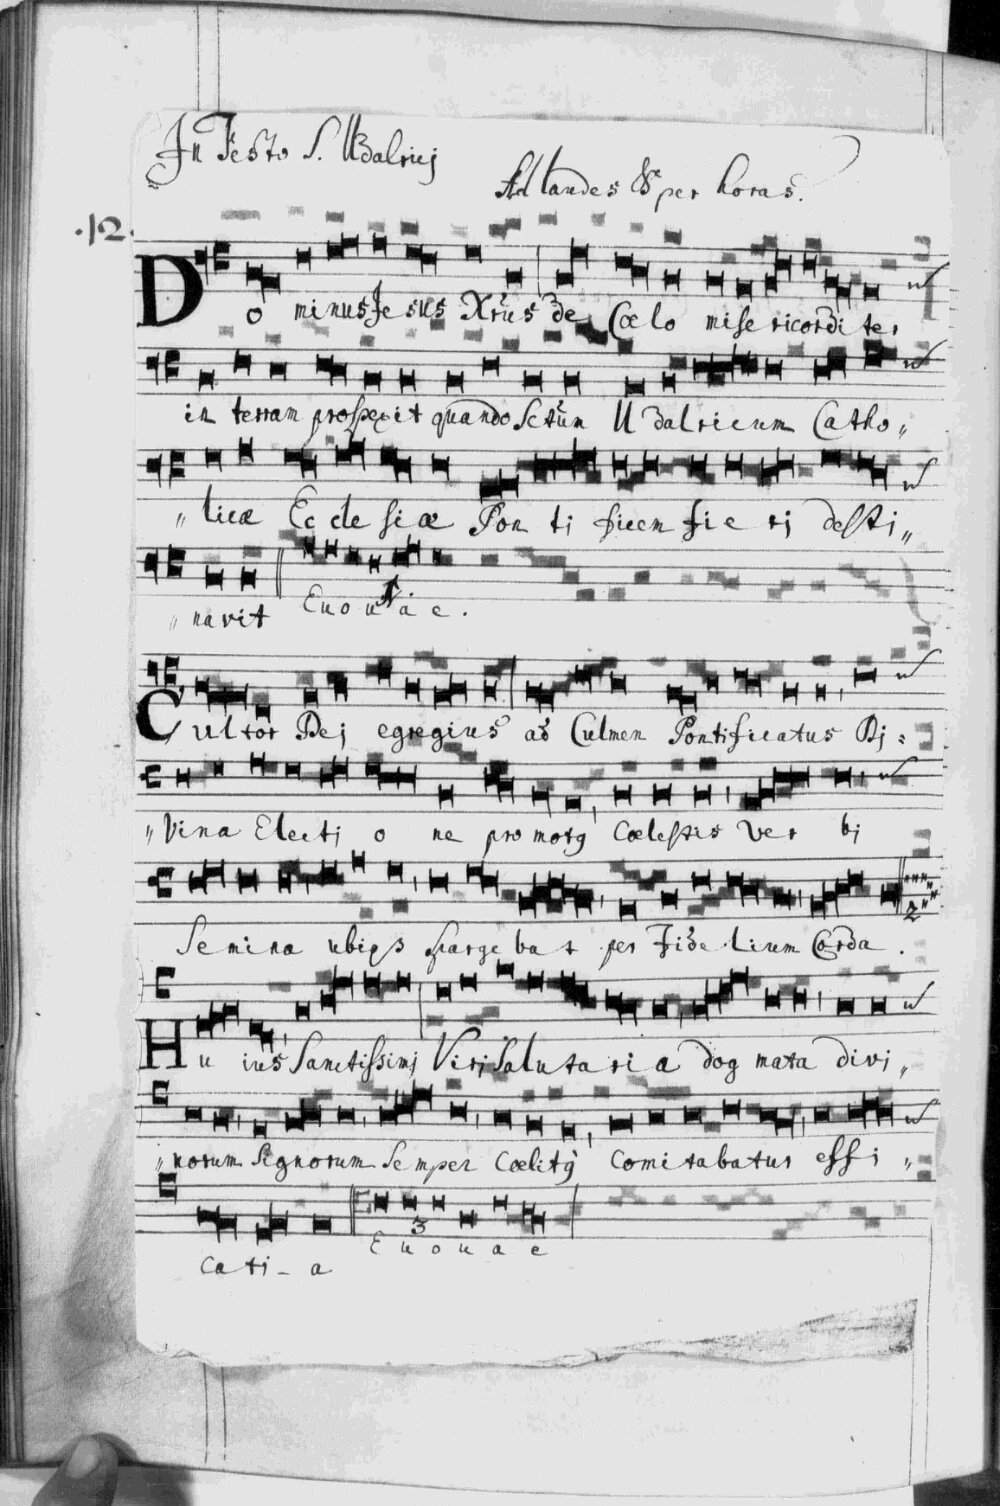 In Festo S. Udalricj
Ad laudes & per horas.
.12.
Dominus Jesus Xr̃us de Cœlo misericorditer
in terram prospexit quando Sctũm Udalricum Catho„
„licæ Ecclesiæ Pontificem fierj desti„
„navit Euouae.
Cultor Dej egregius ad Culmen Pontificatus Dj„
„Vina Electjone promotꝯ cœlestis Verbj
Semina ubiqꝫ spargebat per Fidelium Corda.
Huius Sanctissimj Virj Salutaria dogmata divj„
„norum Signorum Semper Cœlitꝯ Comitabatur effi„
3
Euouae
cati_a